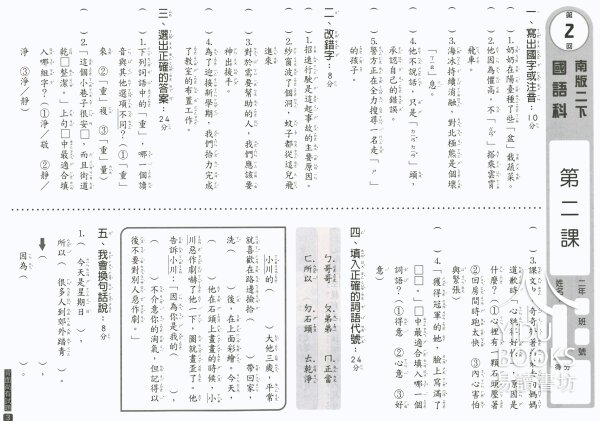 第2回
南版二下
國語科
第二課
二年 班 號
姓名
得分
一、寫出國字或注音：10分
1.奶奶在陽臺種了些「盆」栽蔬菜。
2.他因為懼高，不「ㄍㄢˇ」搭乘雲霄
飛車。
3.海冰持續消融，對北極熊是個壞
「ㄒㄧㄠ」息。
4.他不說話，只是「ㄉㄧㄢˇ」頭，
承認自己的錯誤。
5.警方正在全力搜尋一名走「ㄕ」
的孩子。
二、改錯字：8分
1.招進行駛是這起事故的主要原因。
2.紗窗波了個洞，蚊子都從這兒飛
進來。
3.對於需要幫助的人，我們應該要
神出拔手。
4.為了迎接新學期，我們拾力完成
了教室的布置工作。
三、選出正確的答案：24分
( )1.下列詞語中的「重」，哪一個讀
音與其他選項不同？（①「重」
來 ②「重」複 ③「重」量）
( )2.「這個小巷子很安□，而且街道
乾□整潔。」上句□中最適合填
入哪組字？（①淨／敬 ②靜／
淨 ③淨／靜）
( )3.課文中，奇奇趴著
道歉時，心跳得好快，原因是
什麼？（①心裡有一顆石頭壓著
②回房間時跑太快 ③內心害怕
與緊張）
( )4.「獲得冠軍的她，臉上寫滿了
□□。」□中最適合填入哪一個
詞語？（①得意 ②心意 ③好
意）
四、填入正確的詞語代號：24分
ㄅ.哥哥 ㄆ.弟弟 ㄇ.正當
ㄈ.所以 ㄉ.石頭 ㄊ.乾淨
小川的（ ）大他三歲，平常
就喜歡在路邊撿拾（ ）帶回家，
洗（ ）後，在上面彩繪。今天，
（ ）他在石頭上畫畫的時候，小
川惡作劇嚇了他一下，圖就畫歪了。他
告訴小川：「因為你是我的（ ），
（ ）不介意你的淘氣，但記得以
後不要對別人惡作劇。」
五、我會換句話說：8分
1.（ 今天是星期日 ），
所以（ 很多人到郊外踏青 ）。
因為（ ）。
3